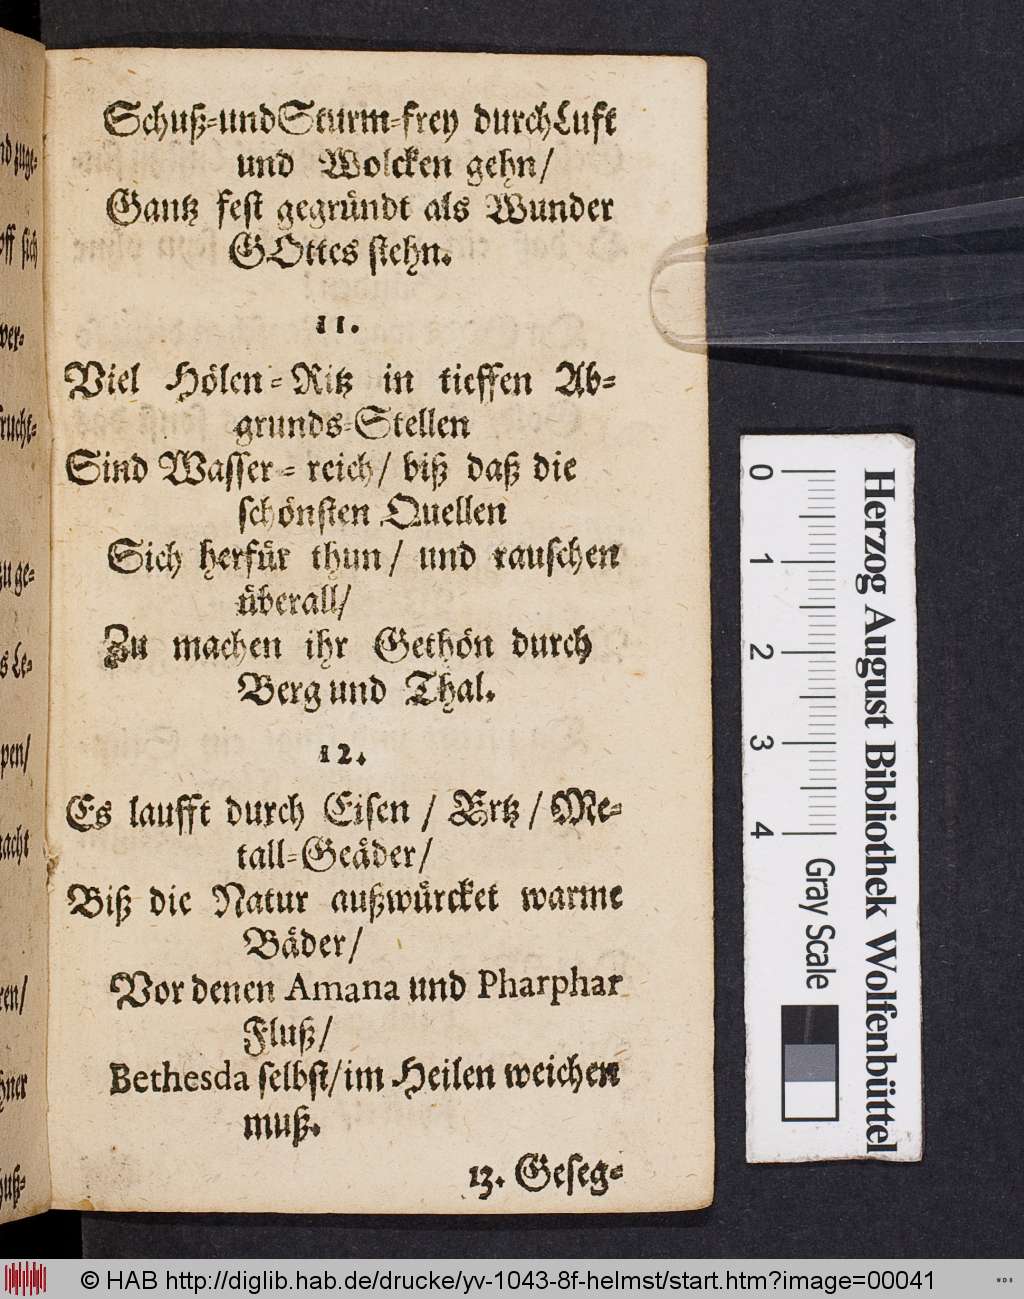 Schuß-und Sturm-frey durch Luft
und Wolcken gehn/
Gantz fest gegründt als Wunder
GOttes stehn.
11.
Viel Hölen-Ritz in tieffen Ab-
grunds-Stellen
Sind Wasser-reich/ biß daß die
schönsten Quellen
Sich herfür thun/ und rauschen
überall/
Zu machen ihr Gethön durch
Berg und Thal.
12.
Es laufft durch Eisen / Ertz / Me-
tall-Geäder/
Biß die Natur außwürcket warme
Bäder/
Vor denen Amana und Pharphar
Fluß/
Bethesda selbst/ im Heilen weichen
muß.
13. Geseg-
Herzog August Bibliothek Wolfenbüttel
0 1 2 3 4
Gray Scale
© HAB http://diglib.hab.de/drucke/yv-1043-8f-helmst/start.htm?image=00041